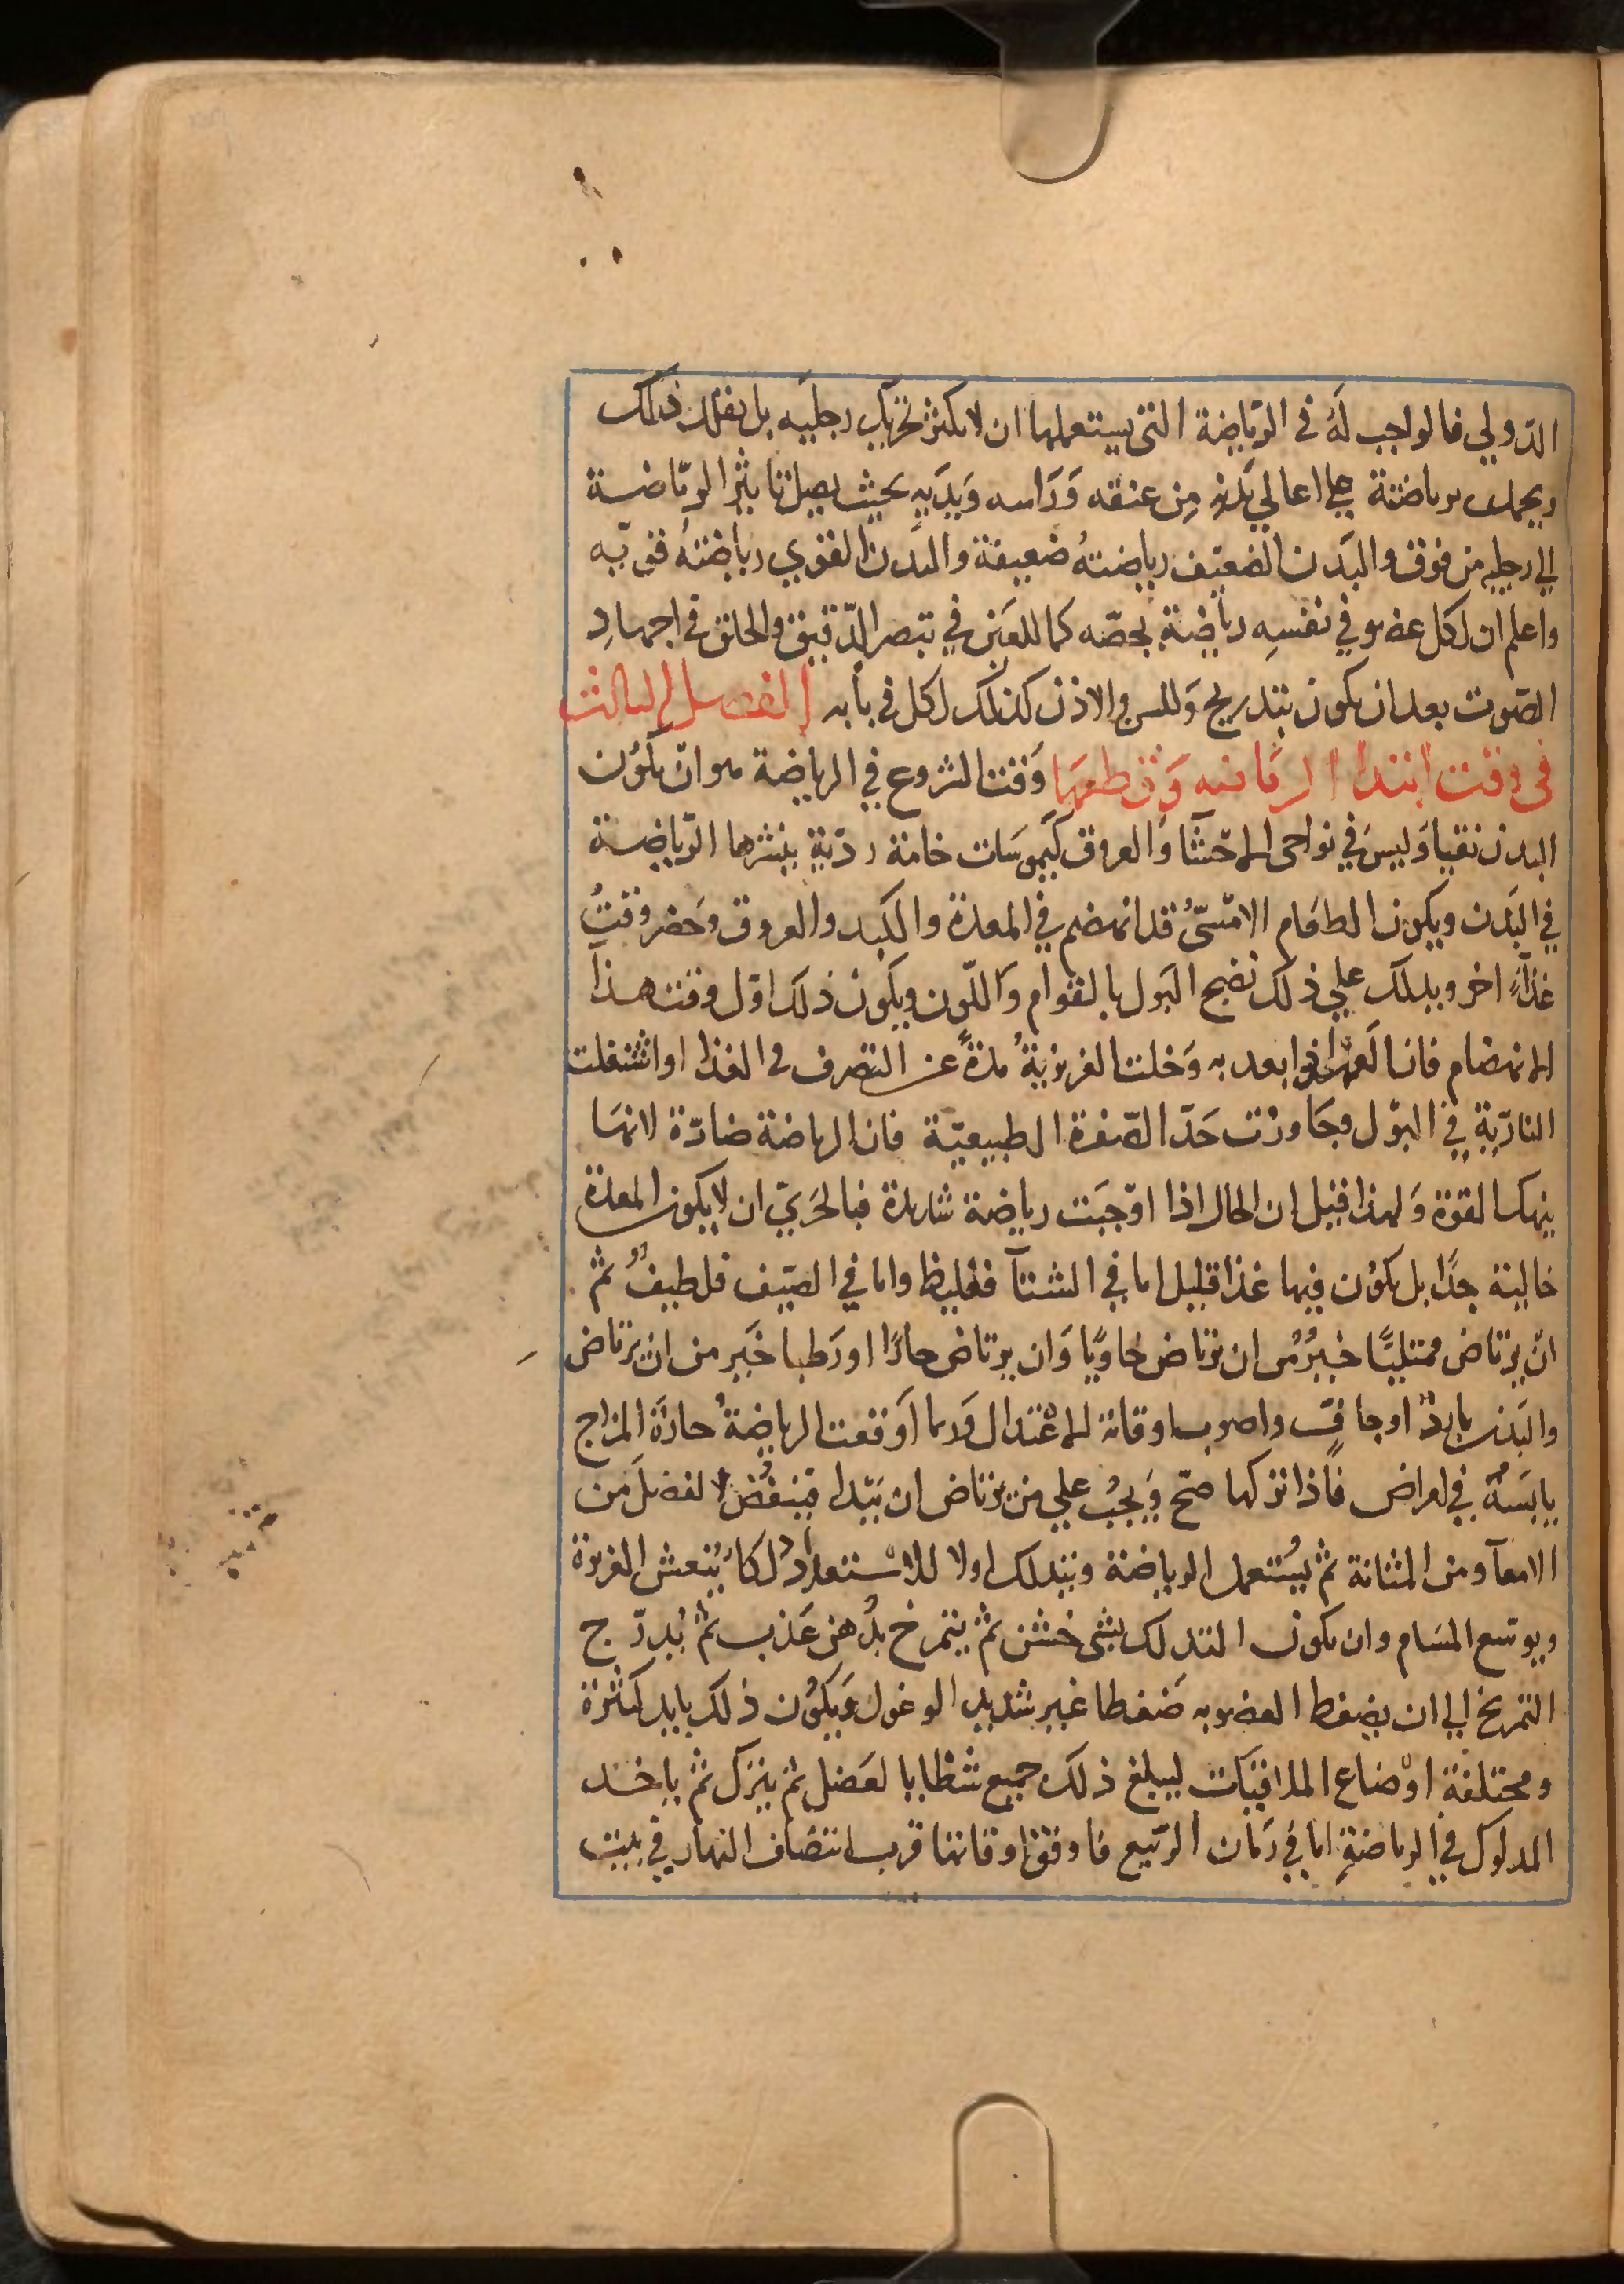 الدوالي فالواجب لَهُ في الرّياضة التي يستعملها ان لا يكثر تحريك رجليه بل يقلل ذلك
ويحمل برياضتة على اعالي بَدنهِ مِن عنقه وَرَاسه وَيدَيهِ بحيث يصل تاثير الرياضة
الي رجليه من فوق والبَدَن الضعيَف رياضتهُ ضعيفة والبدن القوي رياضتهُ قويّه
واعلم ان لكل عضو في نفسِهِ رياضة بخصّه كما للعَين في تبصر الدّقيق والحلق في اجهادِ
الصَوت بعد ان يكون بتدريج وَللسن والاذن كذلك لكل في بابه الفصل الثالث
في وقت ابتدا الرياضه وَقطعهَا وَقت الشروع في الرياضة هو ان يكوُن
البدن نقيا وَليسَ في نواحي الاحَشَا وَالعروق كَيموسَات خامة ردّية ينشرها الرّياضة
في البَدَن ويكون الطعَام الامْسّيُ قد انهضم في المعدة والكبد والعروق وَحضر وقتُ
غذآءٍ اخر ويدلك علي ذلك نضج البَول بالقوام وَاللّون ويكون ذلك اوّل وقت هذا
الانهضام فان العهد اذا بعد به وَخلت الغريزيةُ مدةً عن التصرف في الغذا واشتغلت
الناريّة في البَول وجَاوزت حَدّ الصّفرة الطبيعيّة فان الرياضة ضارّة لانهَا
ينهك القوة وَلهذا قيل ان الحال اذا اوجَبَت رياضة شديدة فبالحَريّ ان لا يكون المعدة
خالية جدًا بل يكوُن فيها غذا قليل اما في الشتآ فغليظ واما في الصيَف فلطيفٌ ثم
انْ يرتاض ممتليًا خيرُ من ان يرتاض خاويًا وَان يرتاض حارًا اورَطبا خَير من ان يرتاض
والبَدن باردٌ اوجافّ واصوب اوقاته الاعْتدال وَربما اوَقعت الرياضةُ حارّة المزاج
يابسَهُ في امراض فَاذا تركها صحّ وَيجبُ علي من يرتاض ان يَبَدا فيَنفُض الفضلَ من
الامعآ ومن المثانة ثم يُستعمل الرياضة ويتدلك اولا للاسْتعداد دلكا يُنعش الغريزة
ويوسّع المسَام وان يكون التدلك بشي خشن ثم يتمرخ بدُهن عَذب ثم يُدرّج
التمريخ الي ان يضغط العضو به ضَغطا غير شديد الوغول وَيكوُن ذلك بايد كثرة
ومختلفة اوْضاع الملاقيَات ليبلغ ذلك جميع شظايا العَضل ثم يترك ثم ياخذ
المدلوك في الرياضةِ اما في زَمان الرّبيع فاوفق اوقاتها قرب انتصَاف النهار في بيت